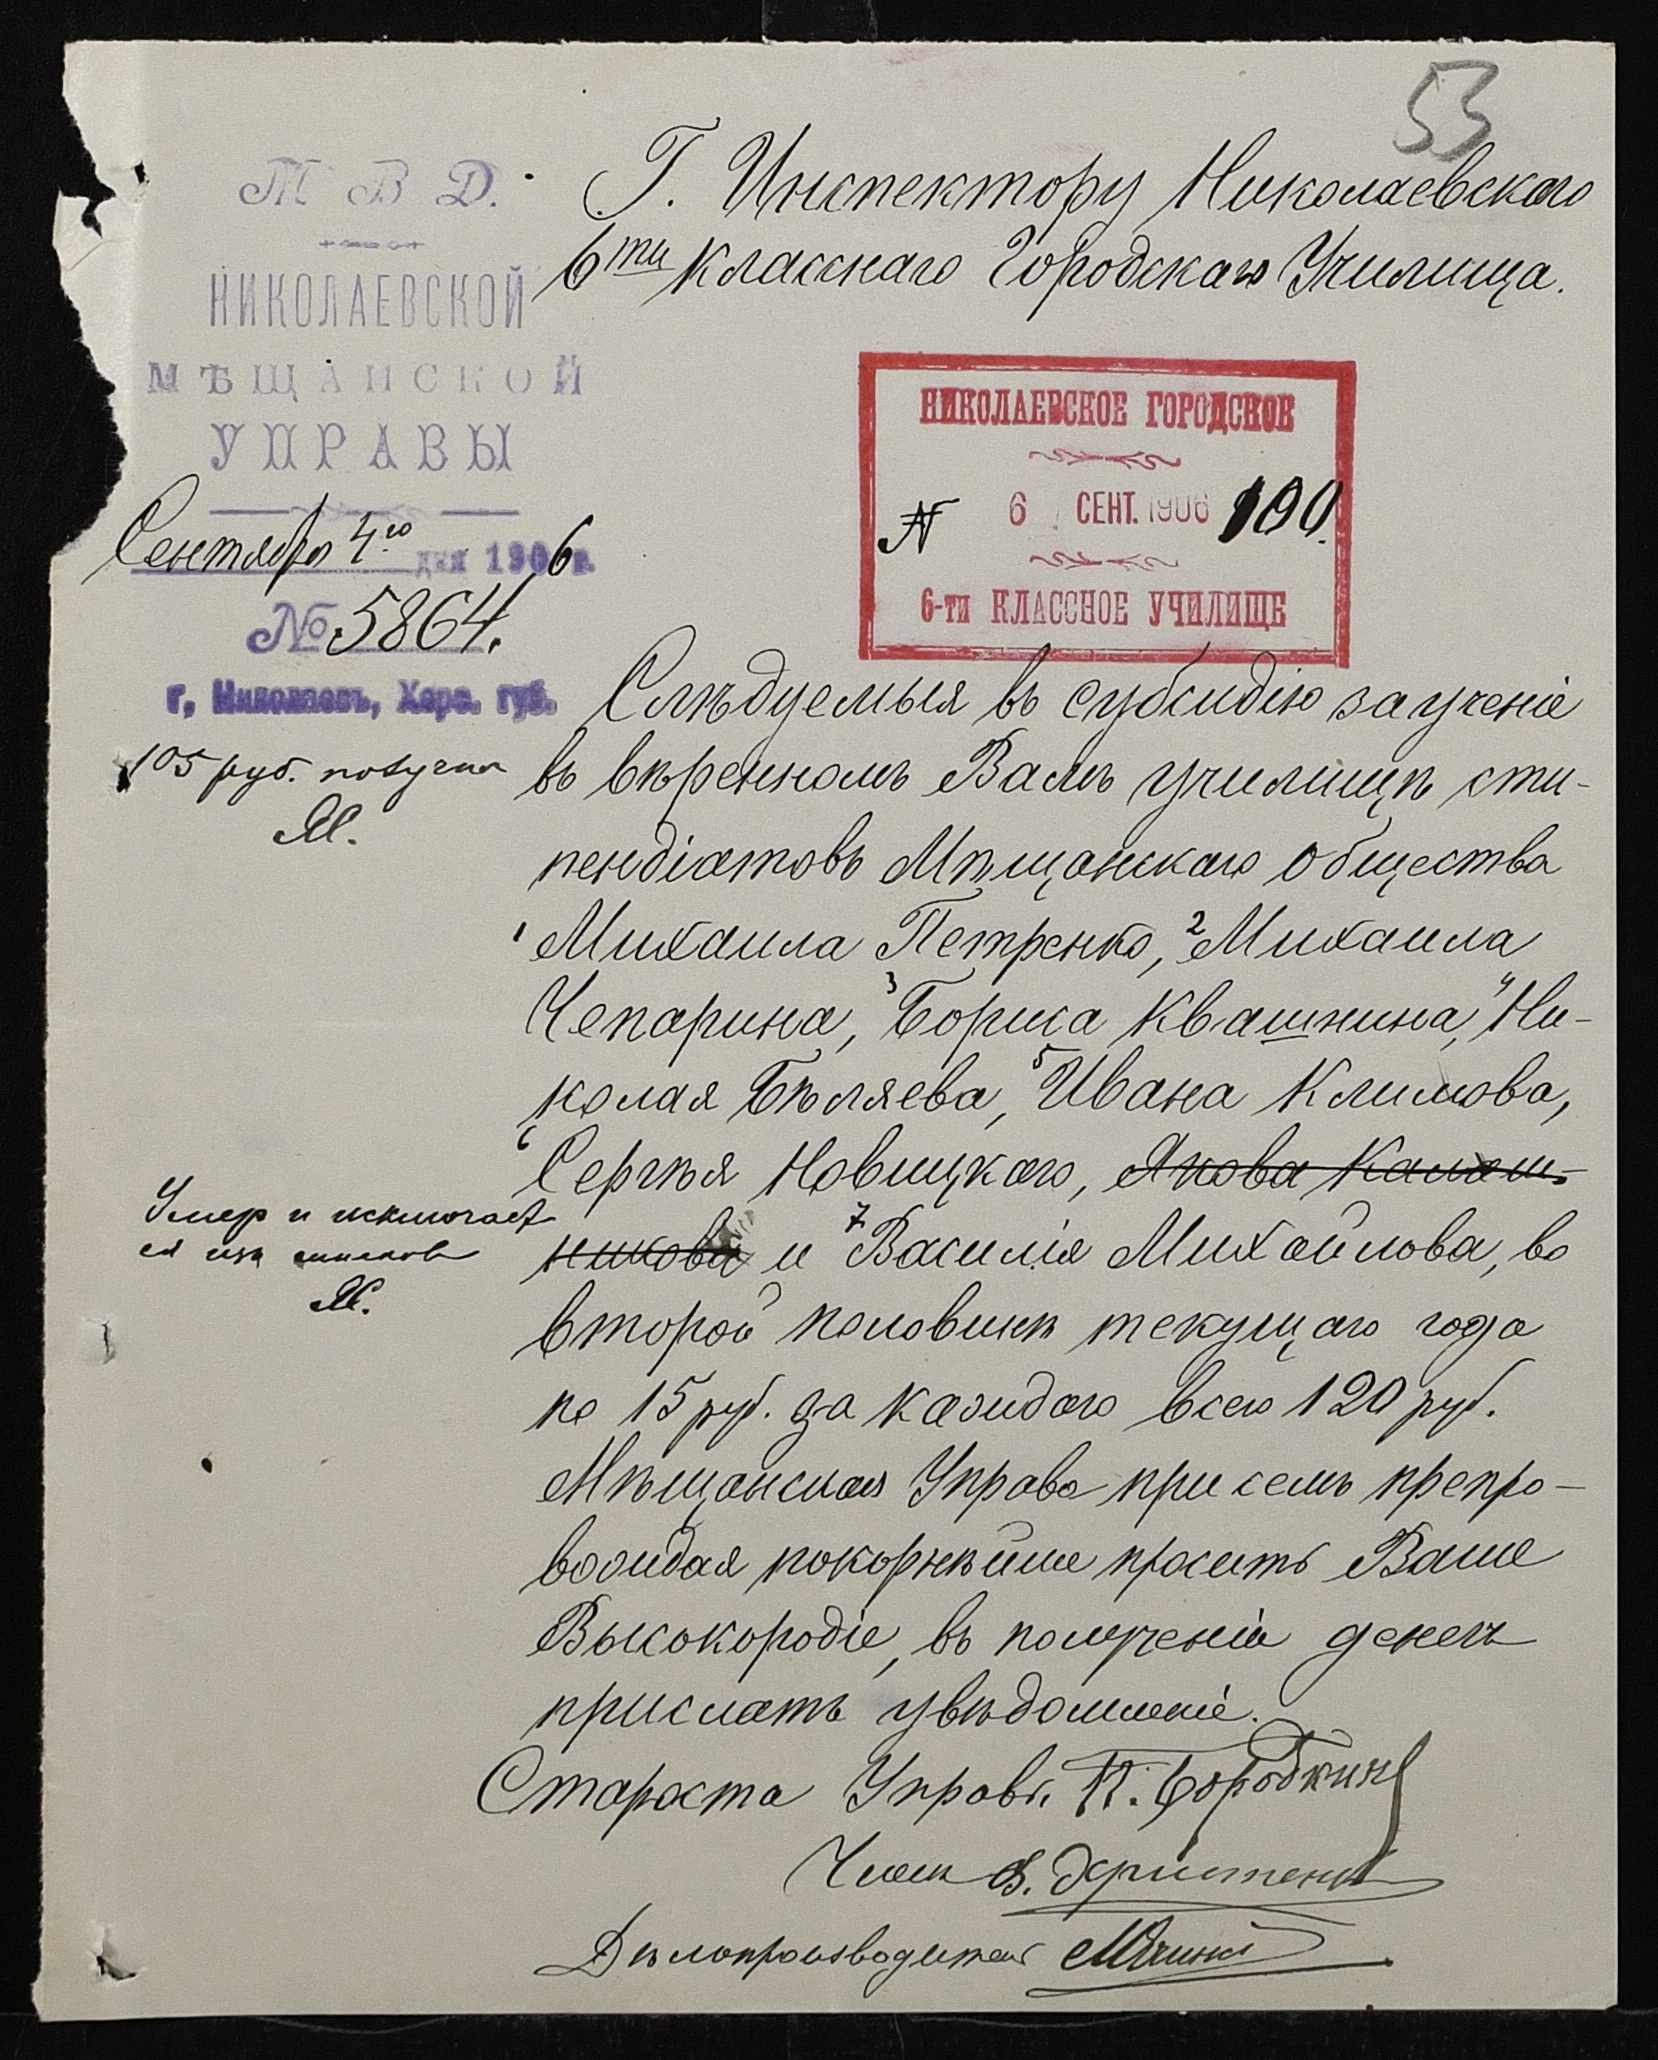 53
М В Д.
НИКОЛАЕВСКОЙ
МѢЩАНСКОЙ
УПРАВЫ
Сентября 4го дня 1906 г.
№ 5864.
г. Николаевъ, Херс. губ.
Г. Инспектору Николаевскаго
6ти класснаго Городскаго Училища.
НИКОЛАЕВСКОЕ ГОРОДСКОЕ
N 6 СЕНТ. 1906 190.
6-ти КЛАССНОЕ УЧИЛИЩЕ
105 руб. получил
Слѣдуемыя въ субсидію за ученіе
въ ввѣренномъ Вамъ училищѣ сти-
пендіатовъ Мѣщанскаго Общества
1 Михаила Петренко, 2 Михаила
Чепарина, 3 Бориса Квашнина, 4 Ни-
колая Бѣляева, 5 Ивана Климова,
6 Сергѣя Новицкаго, Якова Калаш-
никова и 7 Василія Михайлова, во
второй половинѣ текущаго года
по 15 руб. за каждаго всего 120 руб.
Мѣщанская Управа при семъ препро-
вождая покорнѣйше просить Ваше
Высокородіе, въ полученіи денегъ
прислать увѣдомленіе.
Умер и исключает
ся изъ списков
Староста Управы П. Бородкинъ
Членъ
Дѣлопроизводитель